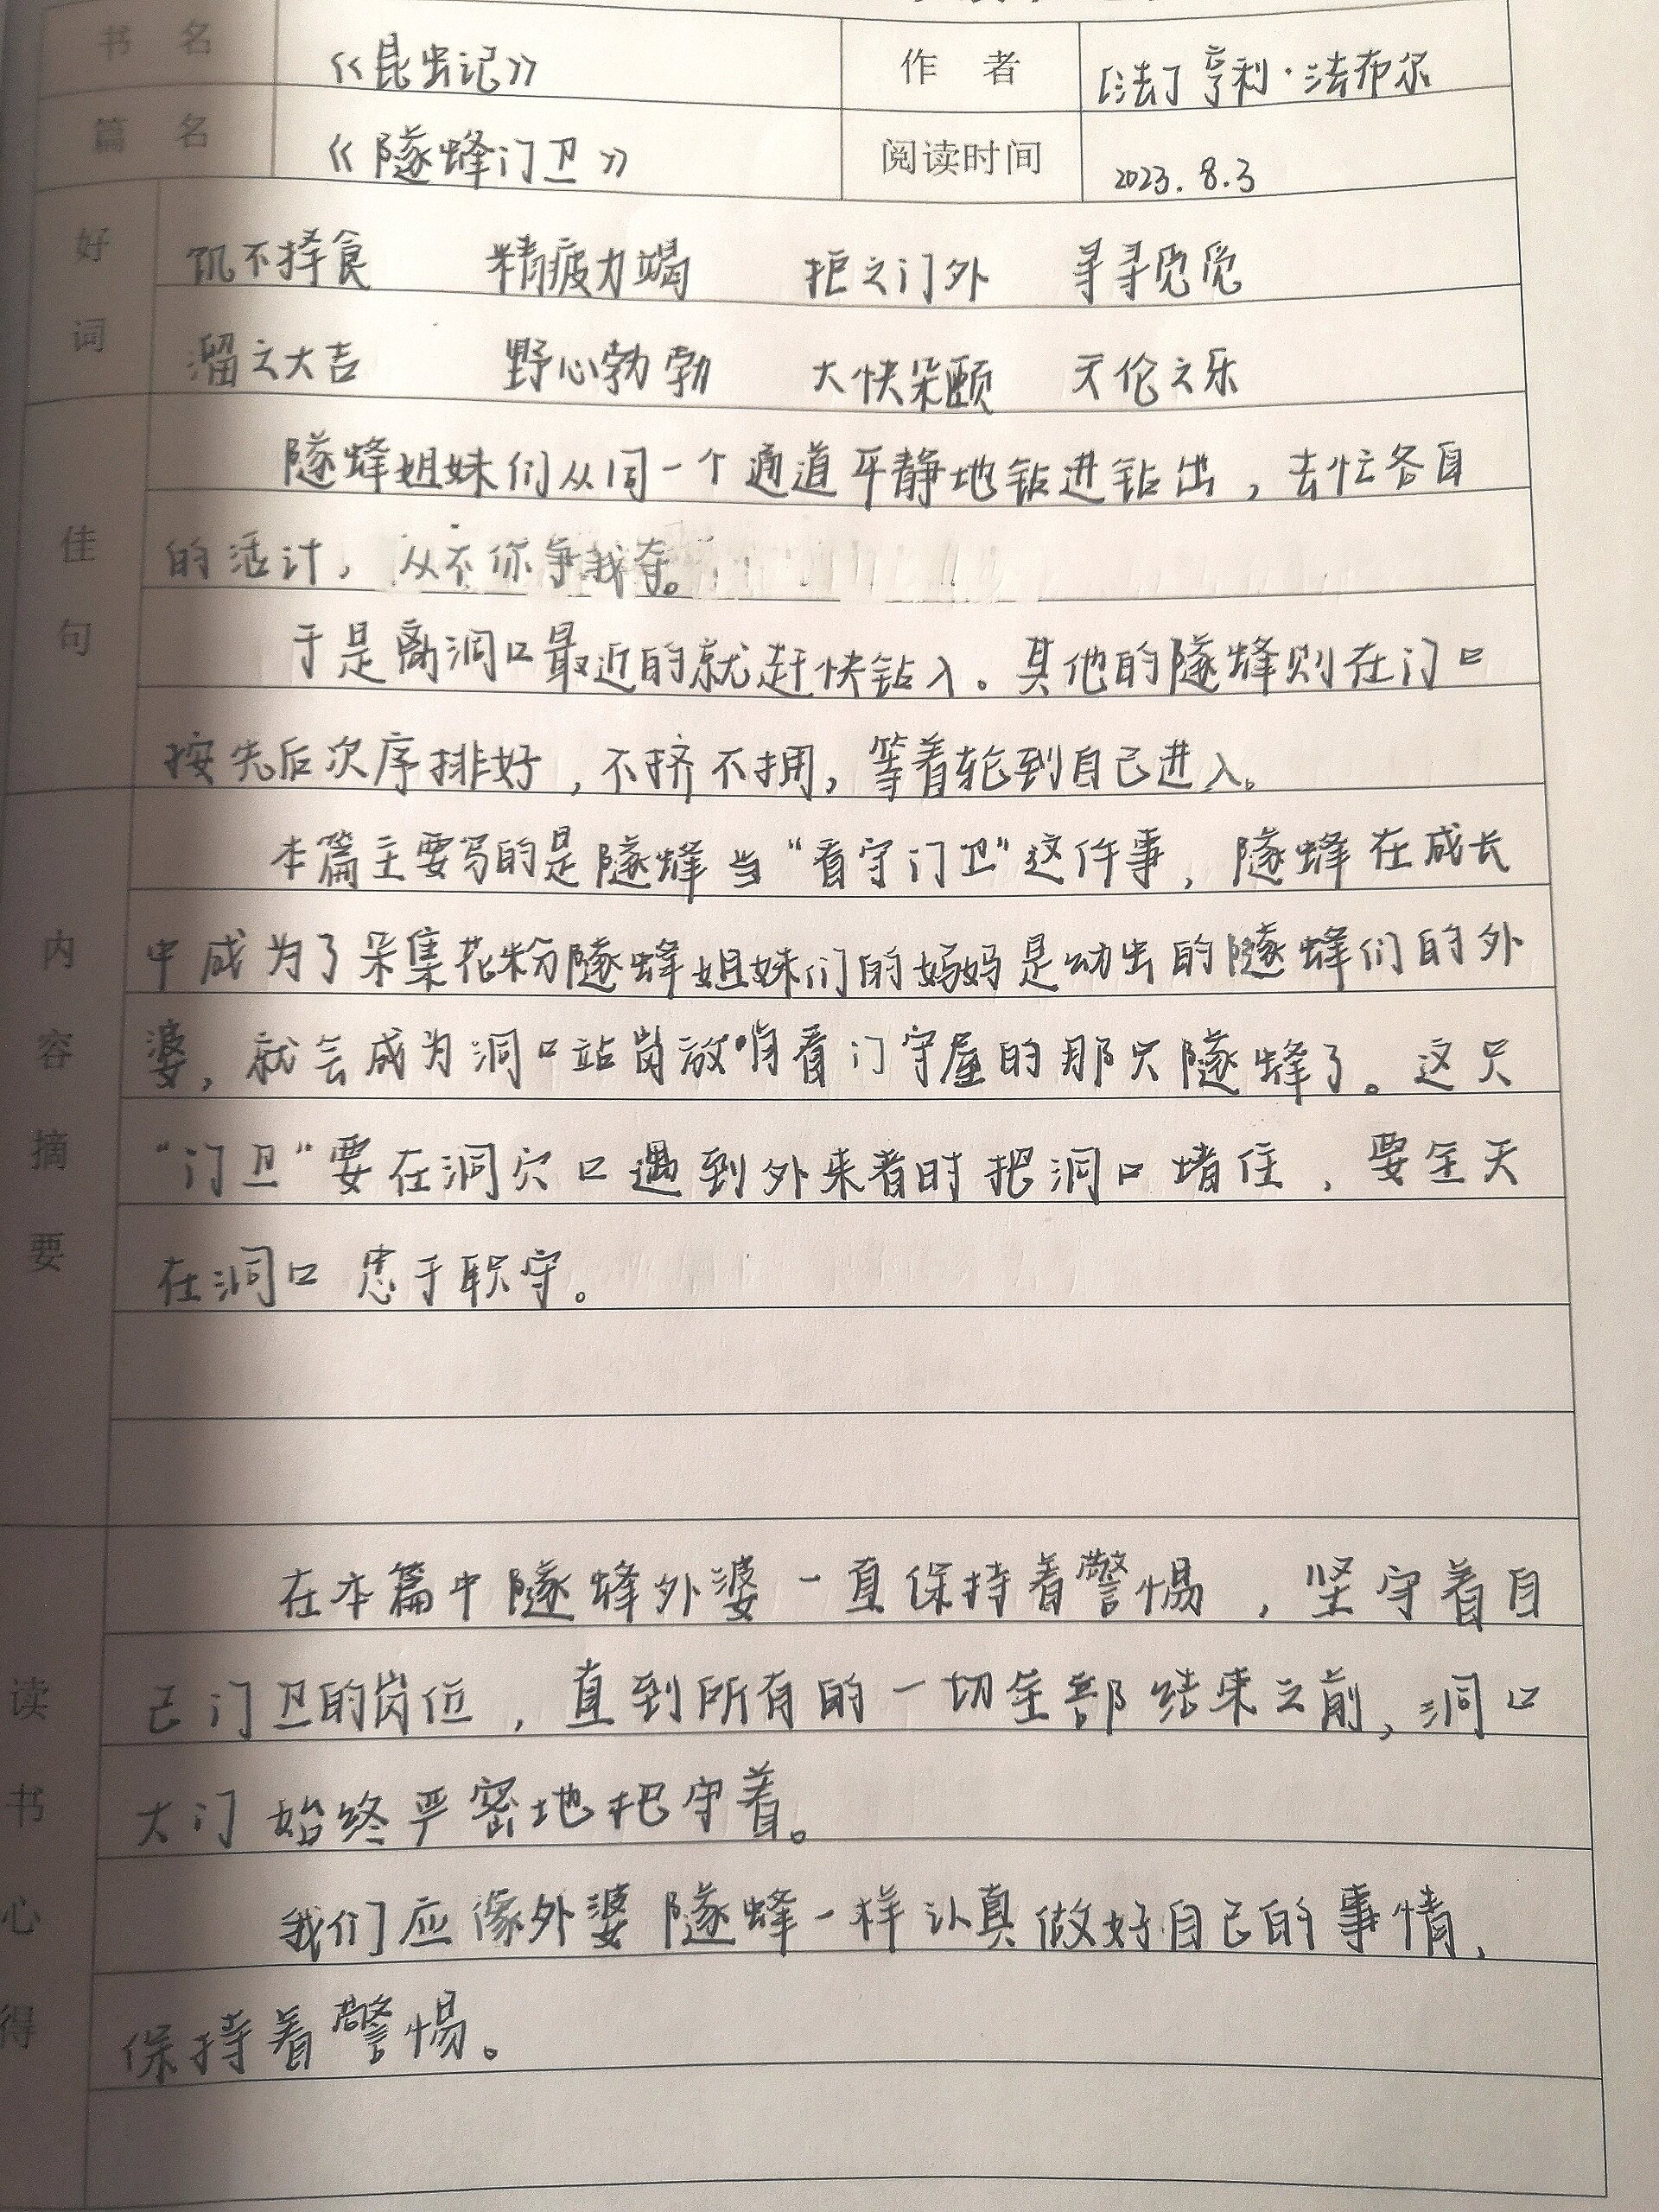 书名 《昆虫记》 作者 [法]亨利·法布尔
篇名 《隧蜂门卫》 阅读时间 2023.8.3
好词 饥不择食 精疲力竭 拒之门外 寻寻觅觅
溜之大吉 野心勃勃 大快朵颐 天伦之乐
佳句 隧蜂姐妹们从同一个通道平静地钻进钻出，去忙各自
的活计，从不你争我夺。
于是离洞口最近的就赶快钻入。其他的隧蜂则在门口
按先后次序排好，不挤不拥，等着轮到自己进入。
内容摘要 本篇主要写的是隧蜂当“看守门卫”这件事，隧蜂在成长
中成为了采集花粉隧蜂姐妹们的妈妈是幼虫的隧蜂们的外
婆，就会成为洞口站岗放哨看门守屋的那只隧蜂了。这只
“门卫”要在洞穴口遇到外来者时把洞口堵住，要全天
在洞口忠于职守。
读书心得 在本篇中隧蜂外婆一直保持着警惕，坚守着自
己门卫的岗位，直到所有的一切全部结束之前，洞口
大门始终严密地把守着。
我们应像外婆隧蜂一样认真做好自己的事情，
保持着警惕。